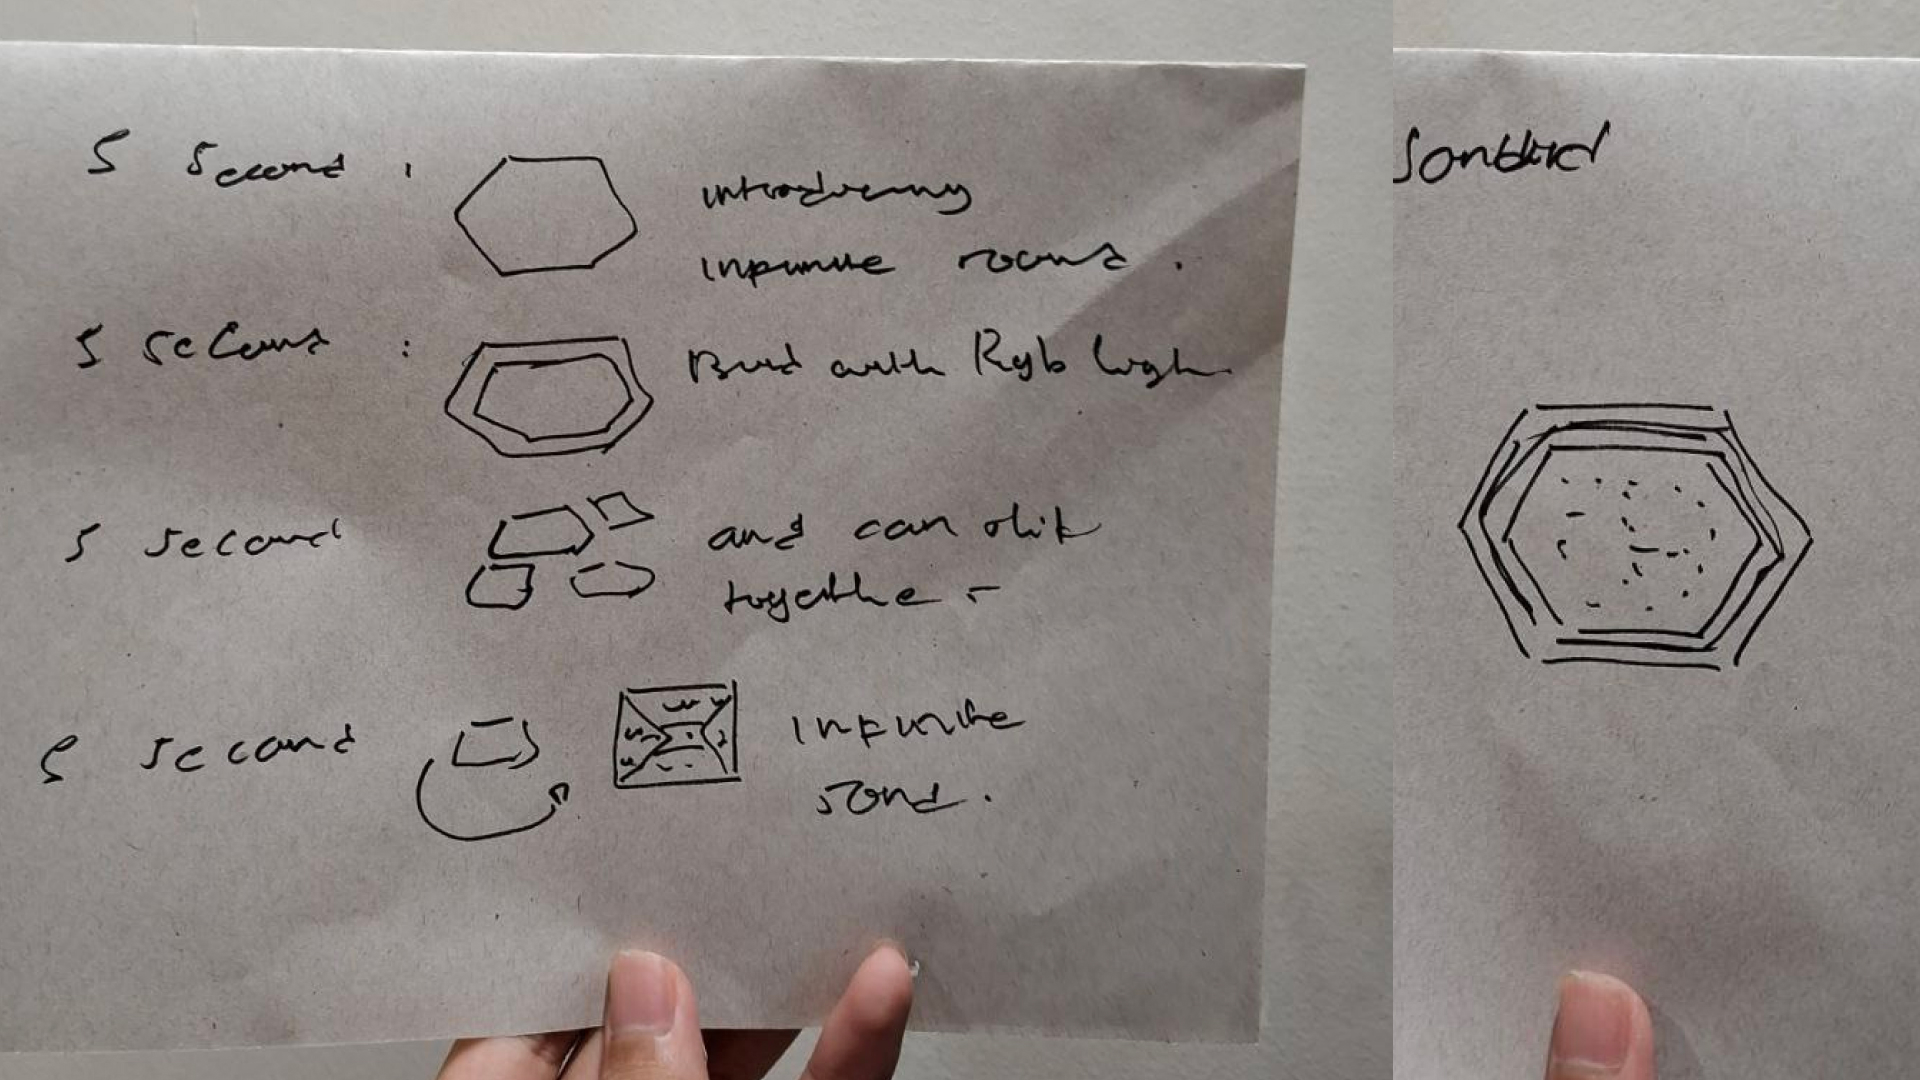 5 second :
introducing
infinite round.
5 second :
Build with Rgb Light.
5 second
and can stick
together -
5 second
infinite
sand.